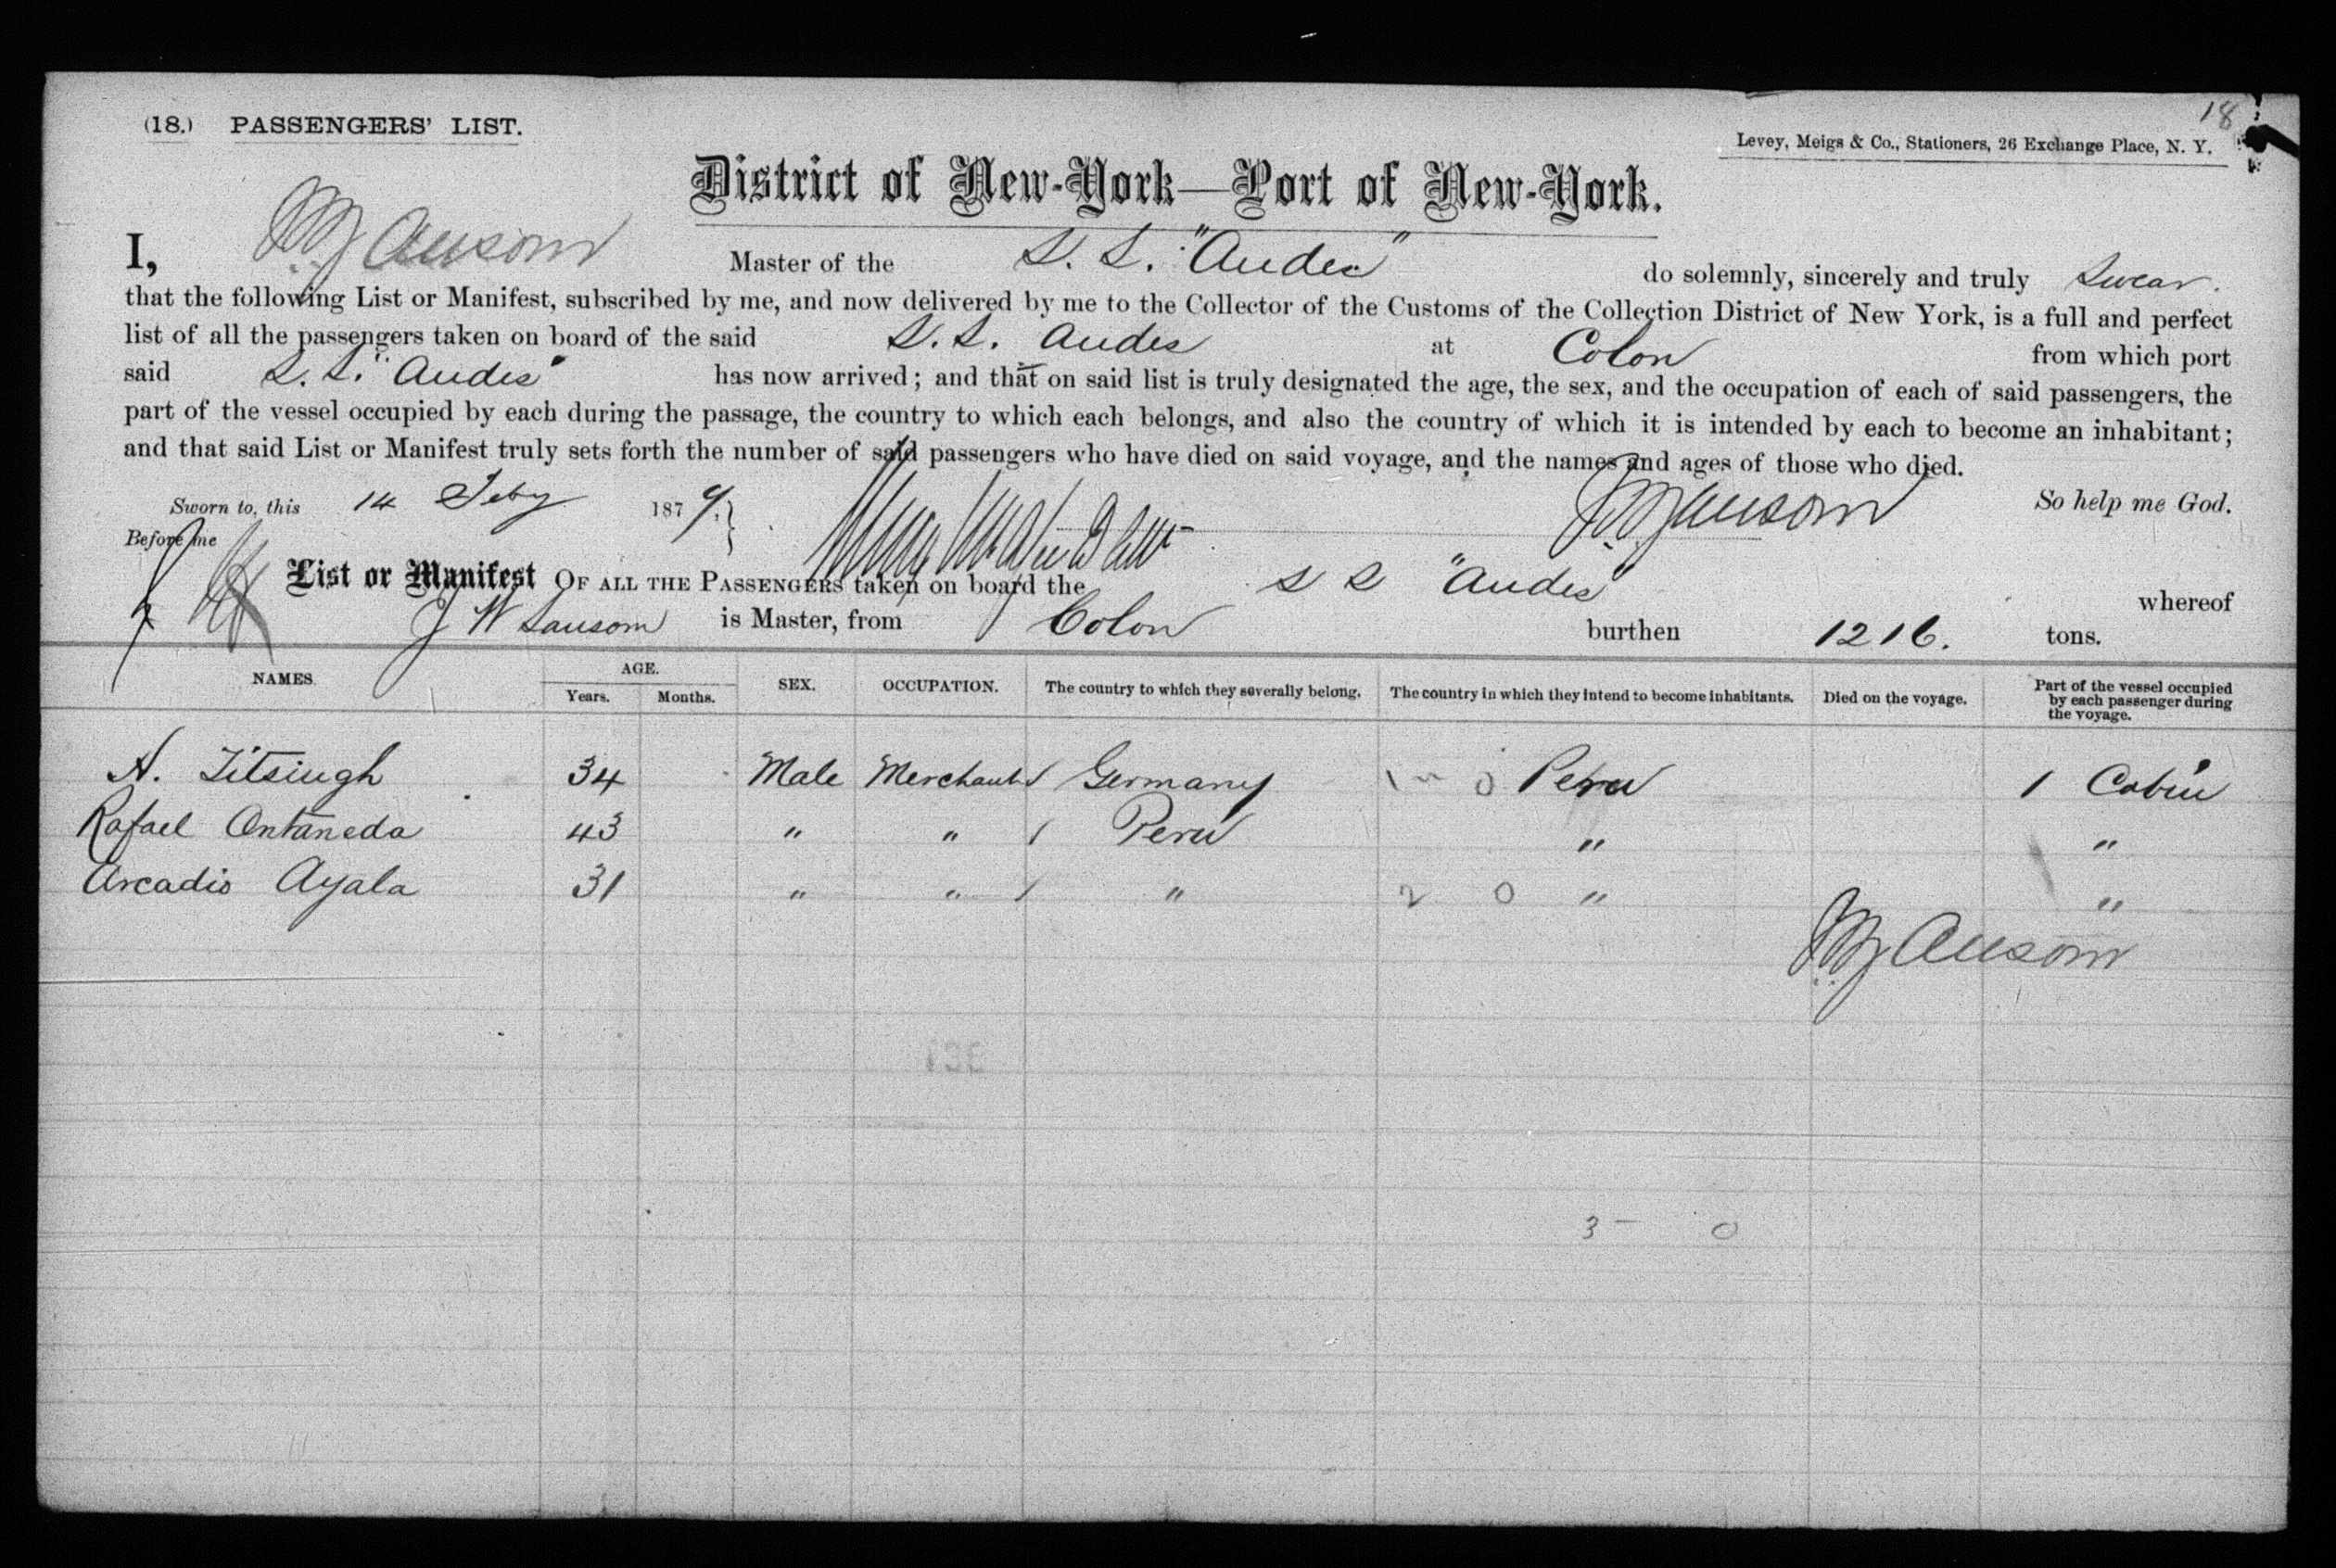 18
(18.) PASSENGERS' LIST.
Levey, Meigs & Co., Stationers, 26 Exchange Place, N. Y.
District of New-York—Port of New-York.
I, JW Sansom Master of the S. S. "Andes" do solemnly, sincerely and truly swear.
that the following List or Manifest, subscribed by me, and now delivered by me to the Collector of the Customs of the Collection District of New York, is a full and perfect
list of all the passengers taken on board of the said S. S. Andes at Colon from which port
said S. S. "Andes" has now arrived; and that on said list is truly designated the age, the sex, and the occupation of each of said passengers, the
part of the vessel occupied by each during the passage, the country to which each belongs, and also the country of which it is intended by each to become an inhabitant;
and that said List or Manifest truly sets forth the number of said passengers who have died on said voyage, and the names and ages of those who died.
Sworn to, this 14 Feby 1879. JW Sansom So help me God.
Before me
List or Manifest OF ALL THE PASSENGERS taken on board the S S "Andes" whereof
J W Sansom is Master, from Colon burthen 1216. tons.
NAMES. AGE. Years. Months. SEX. OCCUPATION. The country to which they severally belong. The country in which they intend to become inhabitants. Died on the voyage. Part of the vessel occupied by each passenger during the voyage.
A. Titsingh 34 Male Merchant / Germany 1 0 Peru 1 Cabin
Rafael Ontaneda 43 " " / Peru " "
Arcadio Ayala 31 " " / " 2 0 " "
JW Sansom
3 - 0